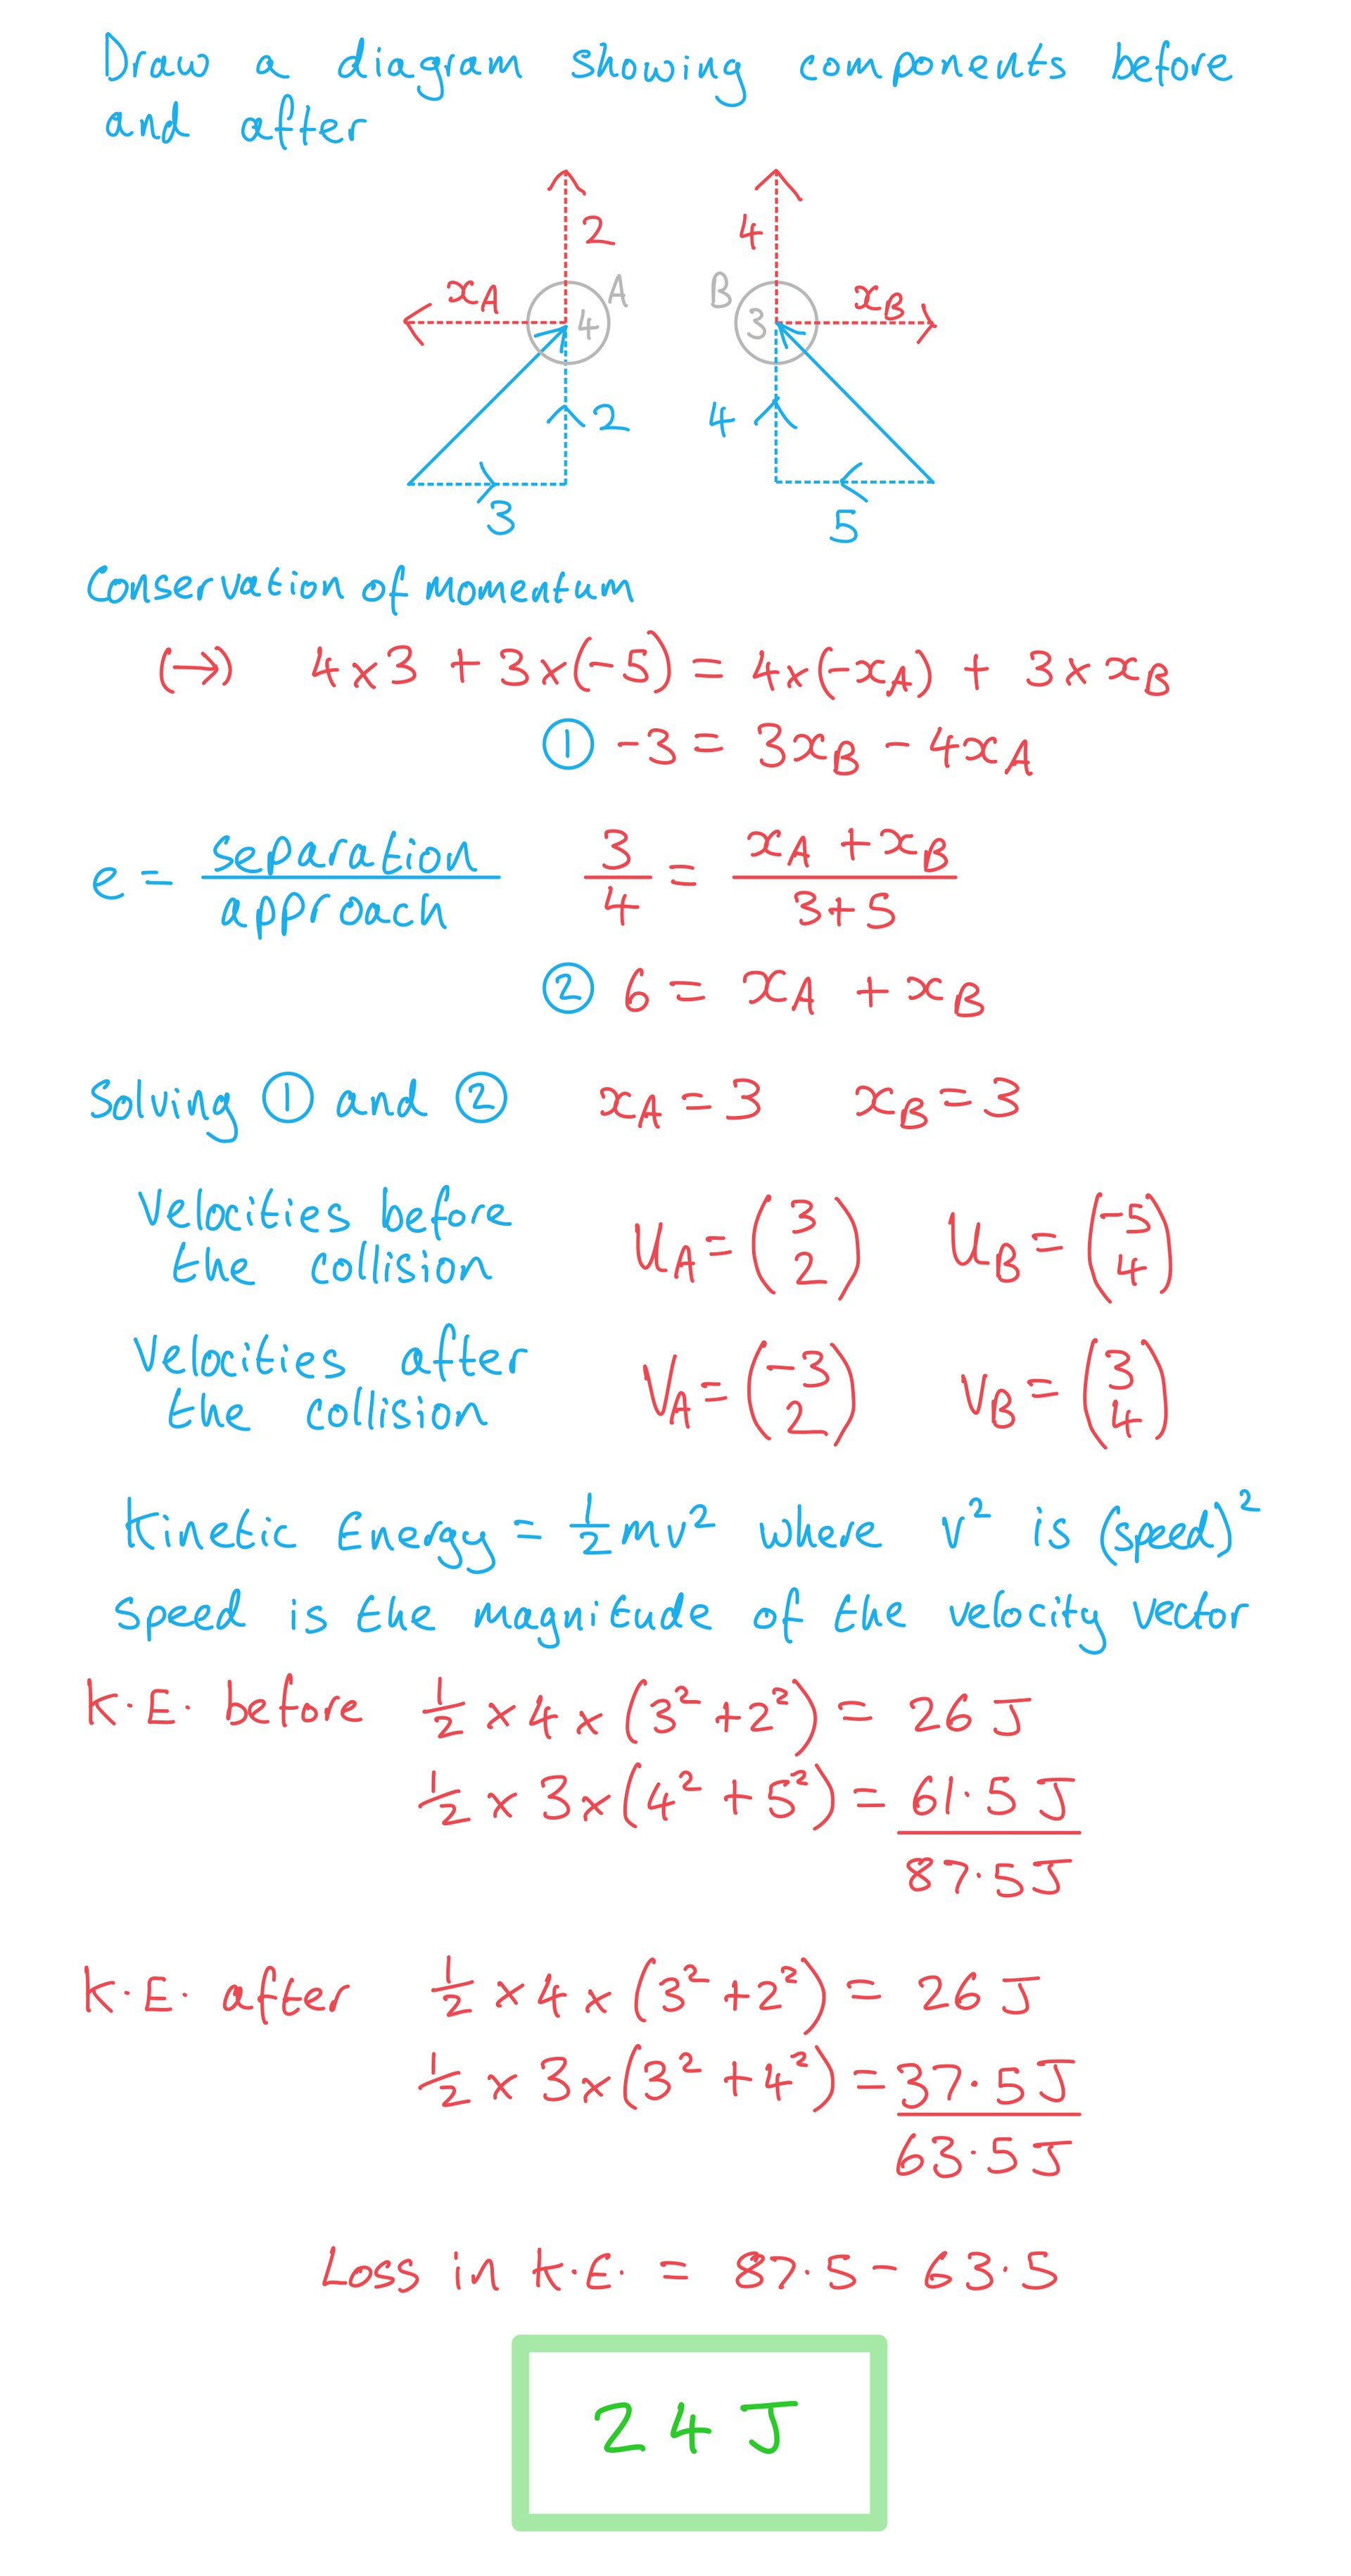 Draw a diagram showing components before
and after
2 4
xA A B xB
4 3
2 4
3 5
Conservation of momentum
(→) 4×3 + 3×(-5) = 4×(-xA) + 3×xB
① -3 = 3xB - 4xA
e = separation/approach 3/4 = (xA + xB)/(3+5)
② 6 = xA + xB
Solving ① and ② xA = 3 xB = 3
Velocities before
the collision UA = (3 2) UB = (-5 4)
Velocities after
the collision VA = (-3 2) VB = (3 4)
Kinetic Energy = ½mv² where v² is (speed)²
Speed is the magnitude of the velocity vector
K.E. before ½ × 4 × (3² + 2²) = 26 J
½ × 3 × (4² + 5²) = 61.5 J
87.5 J
K.E. after ½ × 4 × (3² + 2²) = 26 J
½ × 3 × (3² + 4²) = 37.5 J
63.5 J
Loss in K.E. = 87.5 - 63.5
24 J